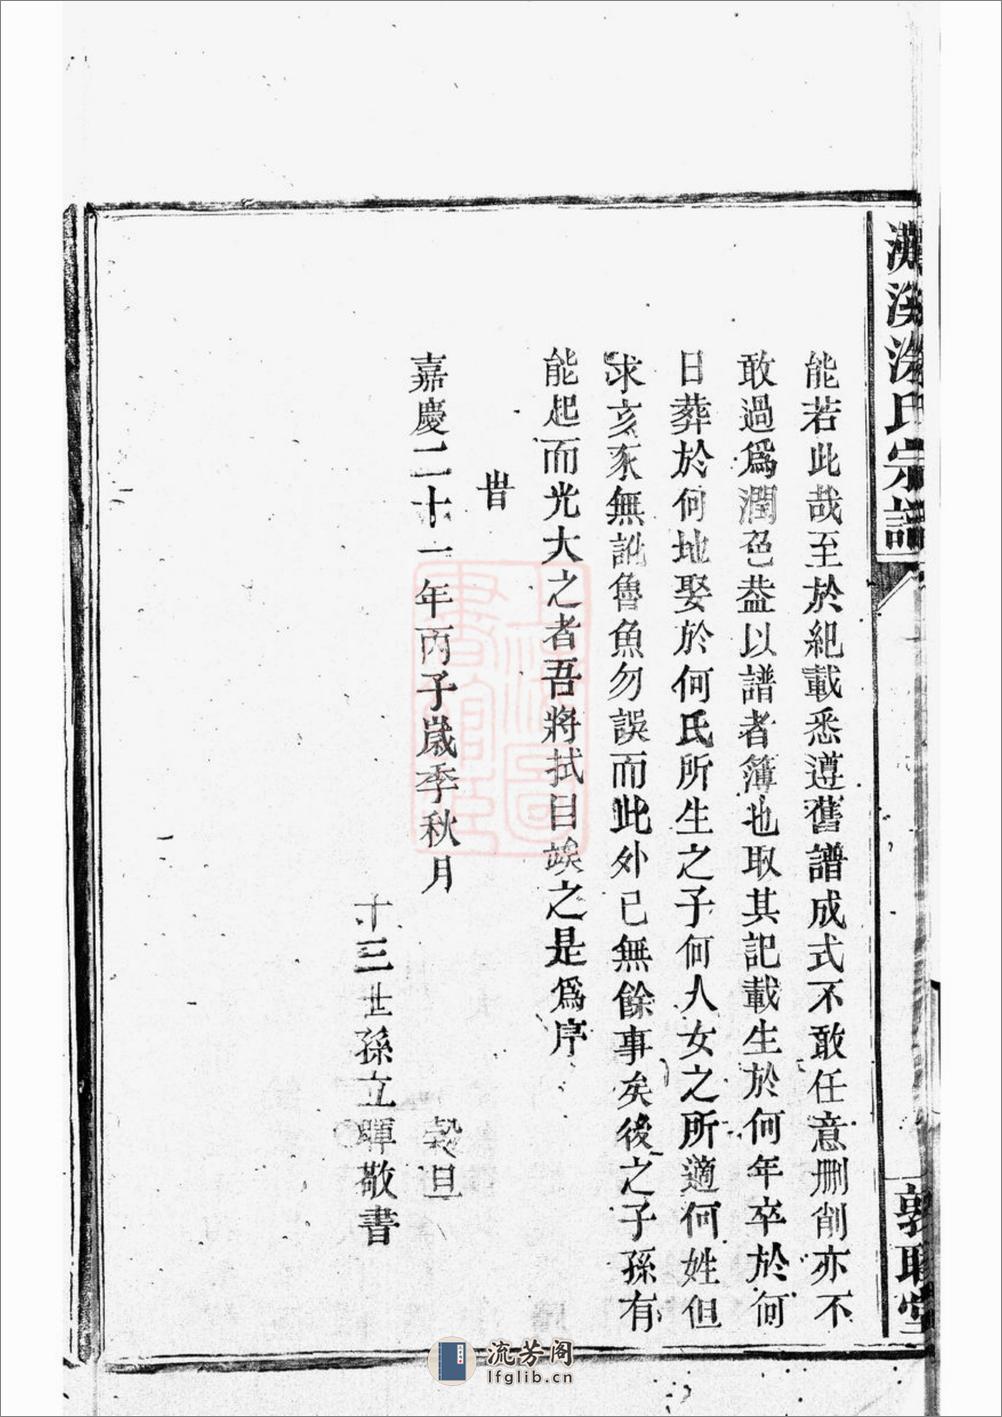 能若此哉至於紀載悉遵舊譜成式不敢任意删削亦不
敢過爲潤色葢以譜者簿也取其記載生於何年卒於何
日葬於何地娶於何氏所生之子何人女之所適何姓但
求亥豕無訛魯魚勿誤而此外已無餘事矣後之子孫有
能起而光大之者吾將拭目竢之是爲序
旹
嘉慶二十一年丙子歲季秋月 穀旦
十三世孫立暉敬書
氏宗譜
敦睦堂
上海圖
書館藏
流芳阁
lfglib.cn